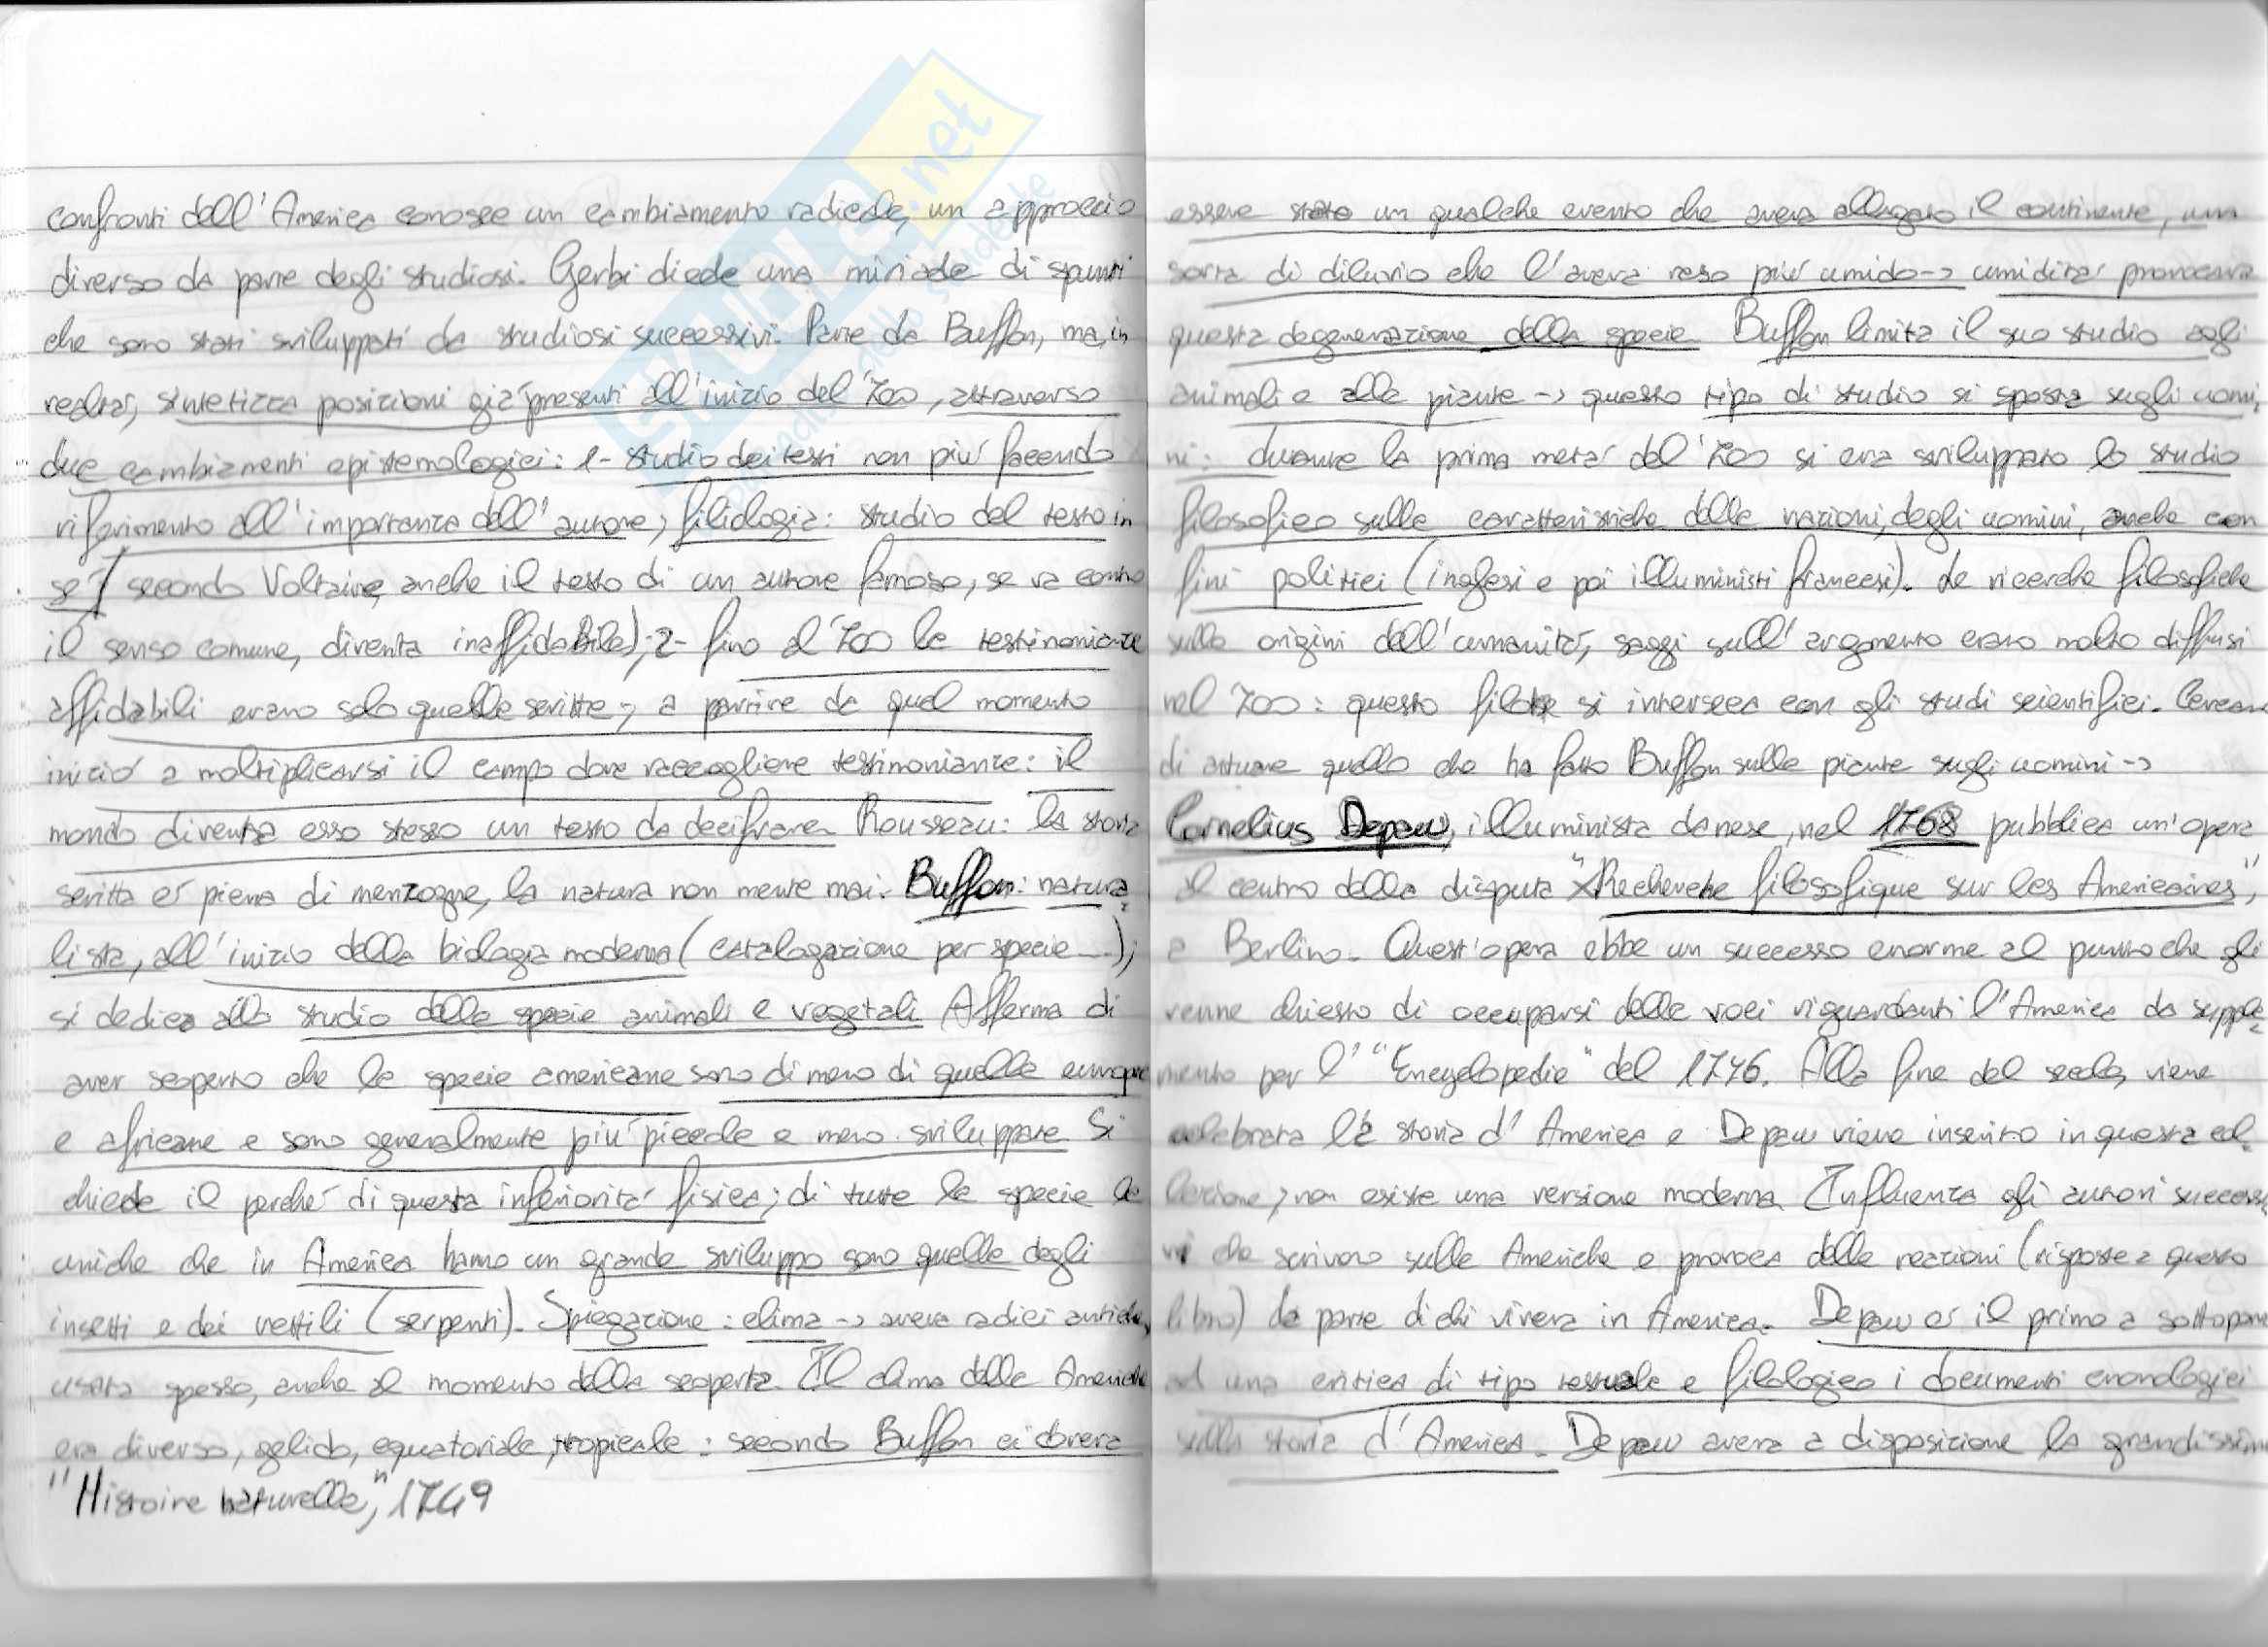 confronti dell'America conosce un cambiamento radicale, un approccio
diverso da parte degli studiosi. Gerbi diede una miriade di spunti
che sono stati sviluppati da studiosi successivi. Parte da Buffon, ma, in
realtà, sintetizza posizioni già presenti all'inizio del '700, attraverso
due cambiamenti epistemologici: 1- studio dei testi non più facendo
riferimento all'importanza dell'autore; filiologia: studio del testo in
sé (secondo Voltaire, anche il testo di un autore famoso, se va contro
il senso comune, diventa inaffidabile); 2- fino al '700 le testimonianze
affidabili erano solo quelle scritte; a partire da quel momento
iniziò a moltiplicarsi il campo dove raccogliere testimonianze: il
mondo diventa esso stesso un testo da decifrare. Rousseau: la storia
scritta è piena di menzogne, la natura non mente mai. Buffon: natura-
lista, all'inizio della biologia moderna (catalogazione per specie...);
si dedica allo studio delle specie animali e vegetali. Afferma di
aver scoperto che le specie americane sono di meno di quelle europee
e africane e sono generalmente più piccole e meno sviluppate. Si
chiede il perché di questa inferiorità fisica; di tutte le specie le
uniche che in America hanno un grande sviluppo sono quelle degli
insetti e dei rettili (serpenti). Spiegazione: clima -> aveva radici antiche,
usata spesso, anche al momento della scoperta. Il clima delle Americhe
era diverso, gelido, equatoriale, tropicale: secondo Buffon ci doveva
"Histoire naturelle", 1749
essere stato un qualche evento che aveva allagato il continente, una
sorta di diluvio che l'aveva reso più umido -> umidità provocava
questa degenerazione della specie. Buffon limita il suo studio agli
animali e alle piante -> questo tipo di studio si sposta sugli uomi-
ni: durante la prima metà del '700 si era sviluppato lo studio
filosofico sulle caratteristiche delle nazioni, degli uomini, anche con
fini politici (inglesi e poi illuministi francesi). Le ricerche filosofiche
sulle origini dell'umanità, saggi sull'argomento erano molto diffusi
nel '700: questo filone si interseca con gli studi scientifici. Cercano
di attuare quello che ha fatto Buffon sulle piante sugli uomini ->
Cornelius Depauw, illuminista danese, nel 1768 pubblica un'opera
al centro della disputa "Recherche filosofique sur les Americaines",
a Berlino. Quest'opera ebbe un successo enorme al punto che gli
venne chiesto di occuparsi delle voci riguardanti l'America da supple-
mento per l'"Encyclopedie" del 1776. Alla fine del secolo, viene
celebrata la storia d'America e Depauw viene inserito in questa col-
lezione; non esiste una versione moderna. Influenza gli autori successi-
vi che scrivono sulle Americhe e provoca delle reazioni (risposte a questo
libro) da parte di chi viveva in America. Depauw è il primo a sottoporre
ad una critica di tipo testuale e filologico i documenti cronologici
sulla storia d'America. Depauw aveva a disposizione la grandissima